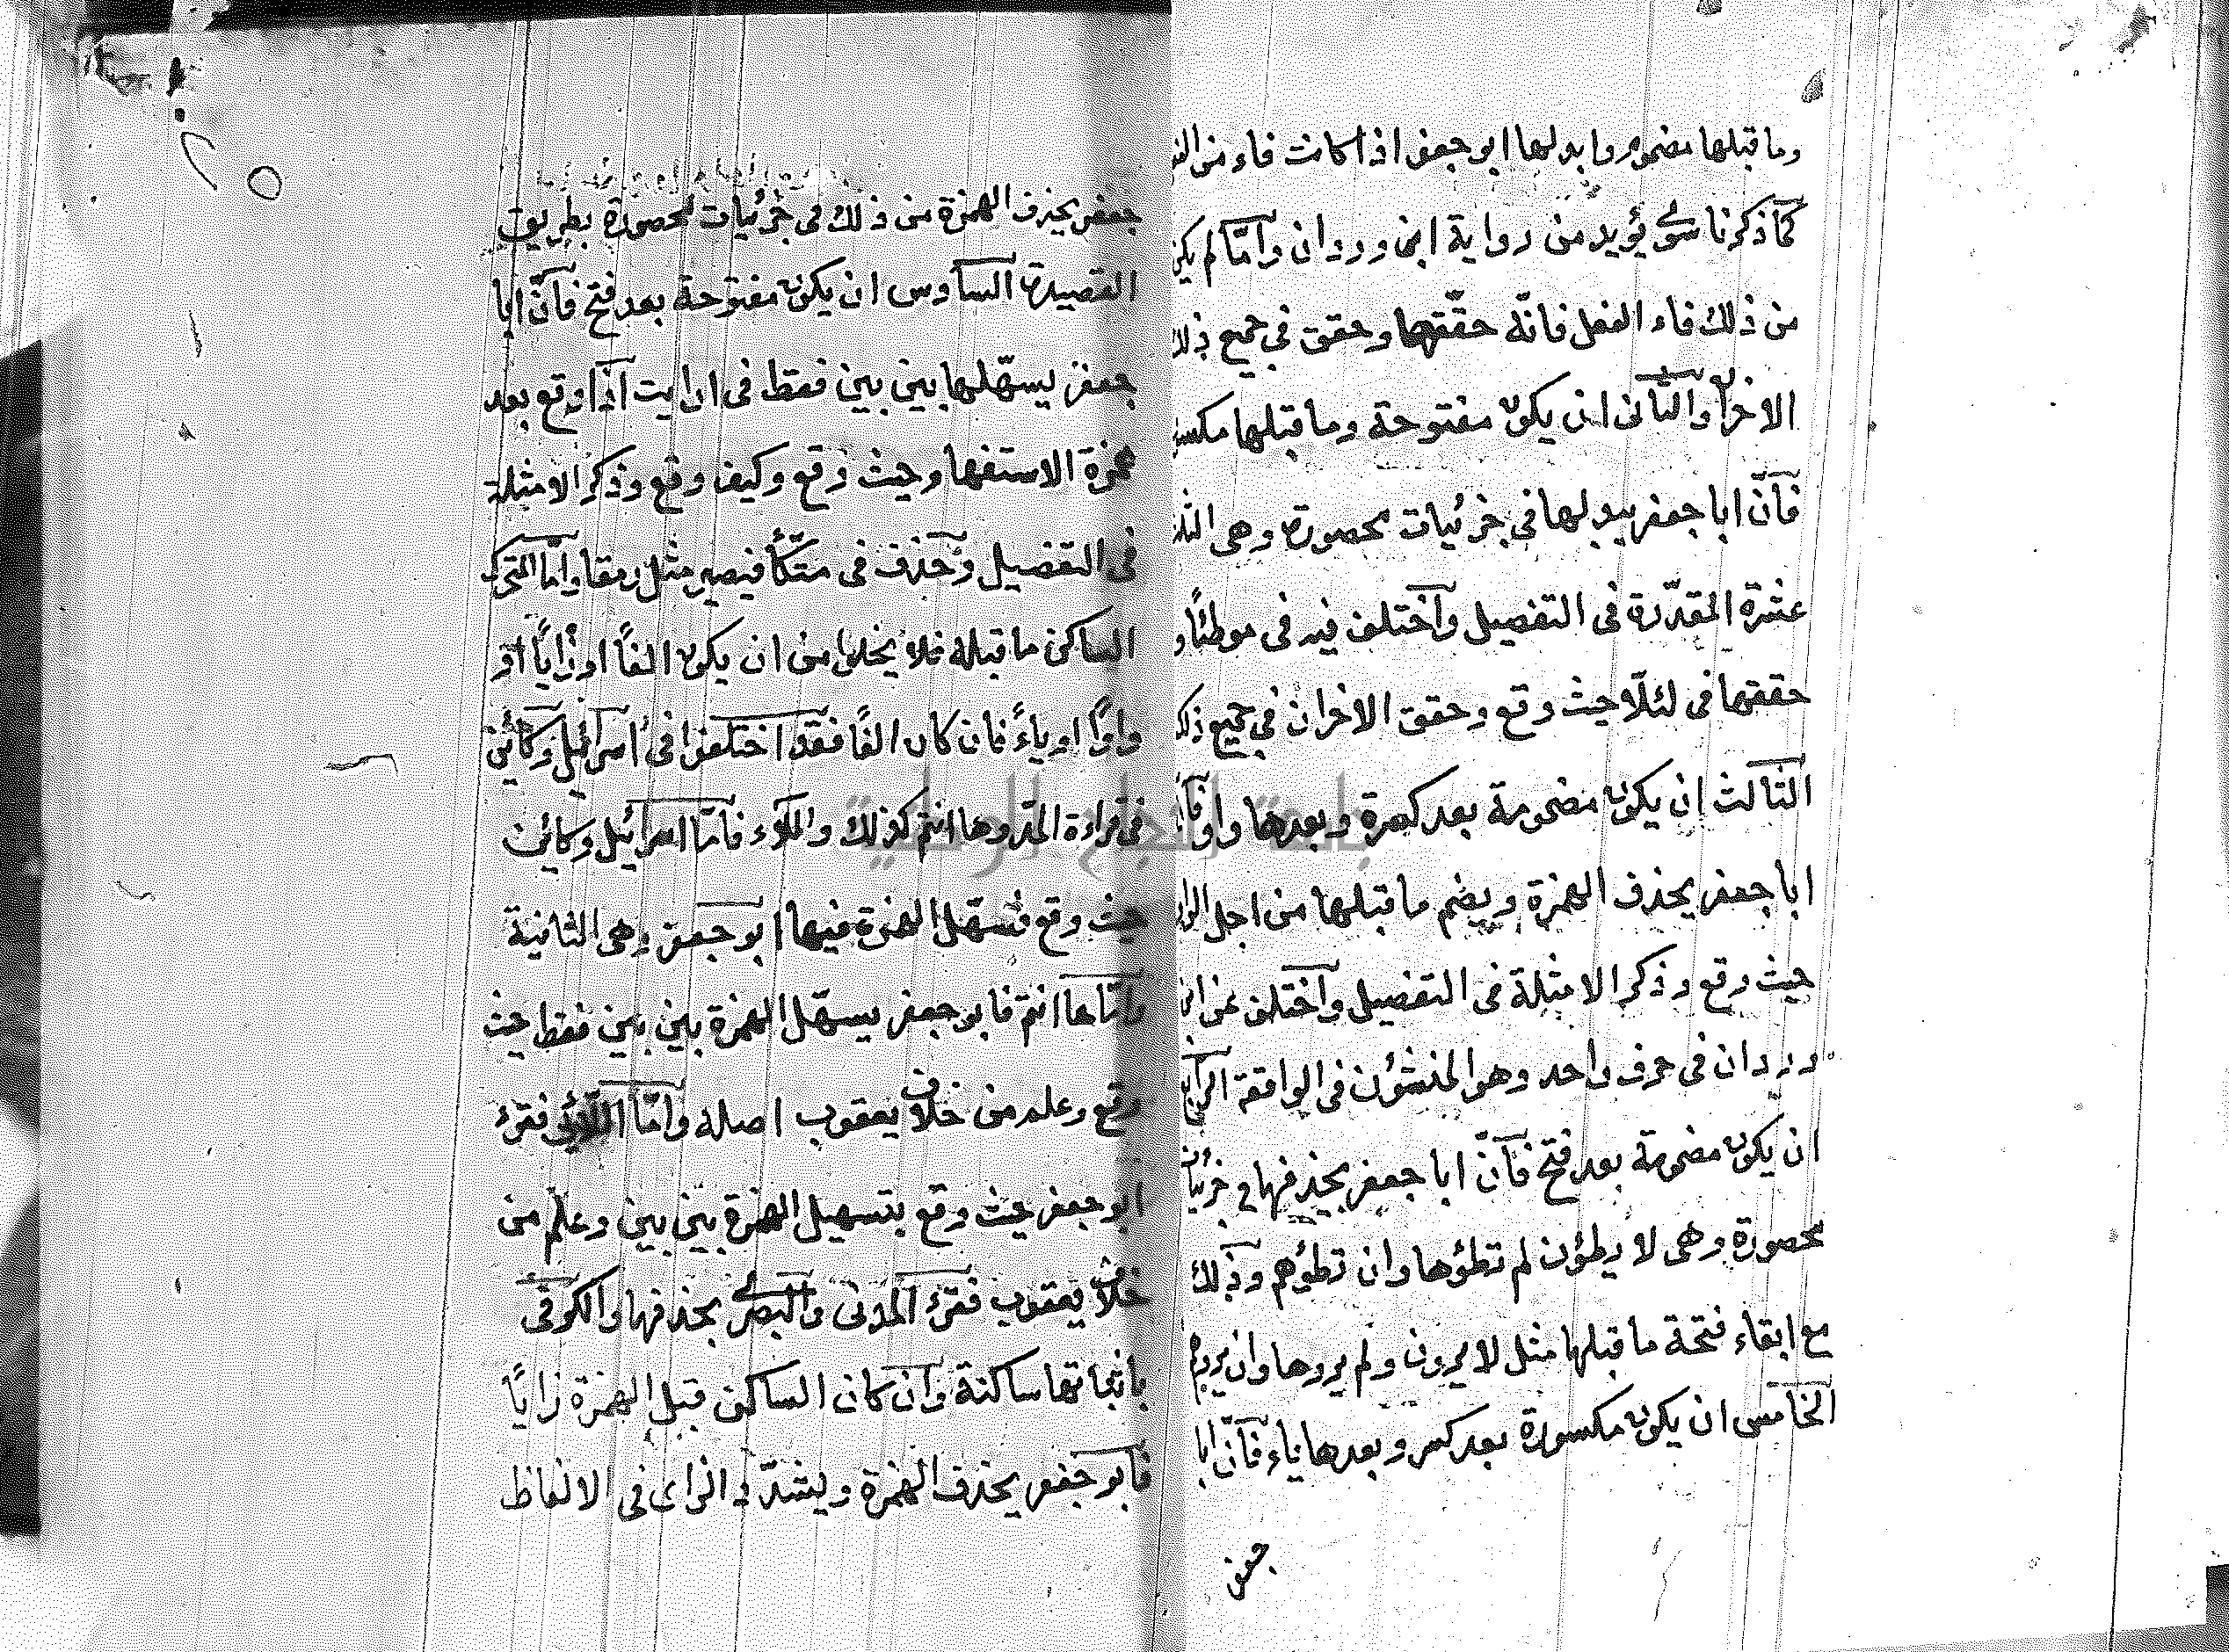 وما قبلها مضموم وابدلها ابو جعفر اذا كانت فاء من
كما ذكرنا سوى يؤيد من رواية ابن وردان وامّا لم يكن
من ذلك فاء الفعل فانّه حقّقها وحقق في جميع ذلك
الاخران والثاني ان يكون مفتوحة وما قبلها
فانّ ابا جعفر يبدلها في جزئيات محصورة وهى
عشرة المقدّرة في التفصيل واختلف فيه في موطئًا و
حققها في لئلّا حيث وقع وحقق الاخران في جميع ذلك
الثالث ان يكون مضمومة بعد كسرة وبعدها واو فانّ
ابا جعفر يحذف الهمزة ويضم ما قبلها من اجل الواو
حيث وقع وذكر الامثلة في التفصيل واختلف عن ابن
وردان في حرف واحد وهو المنشؤن في الواقعة الرابع
ان يكون مضمومة بعد فتح فانّ ابا جعفر يحذفها في جزئيات
محصورة وهى لا يطؤن لم تطؤها وان تطؤهم وذلك
مع ابقاء فتحة ما قبلها مثل لا يرون ولم يروها وان يروهم
الخامس ان يكون مكسورة بعد كسر وبعدها ياء فانّ ابا
جعفر
جعفر يحذف الهمزة من ذلك في جزئيات محصورة بطريق
القصيدة السادس ان يكون مفتوحة بعد فتح فانّ ابا
جعفر يسهّلها بين بين فقط في ارايت اذا وقع بعد
همزة الاستفهام حيث وقع وكيف وقع وذكر الامثلة
في التفصيل وحذف في متّكأ فيصير مثل رمقا وامّا المتحرك
الساكن ما قبله فلا يخلوا من ان يكون الفًا او زايًا او
واوًا او ياءً فان كان الفًا فقد اختلفوا في اسرائيل وكائن
في قراءة المد وها انتم كذلك و فامّا اسرائيل وكائن
حيث وقع فسهّل الهمزة فيها ابو جعفر وهى الثانية
وامّا ها انتم فابو جعفر يسهّل الهمزة بين بين فقط حيث
وقع وعلم من خلاف يعقوب اصله وامّا اللّائي فقرء
ابو جعفر حيث وقع بتسهيل الهمزة بين بين وعلم من
خلاف يعقوب فقرء المدنى والبصرى بحذفها والكوفى
باثباتها ساكنة وان كان الساكن قبل الهمزة زايًا
فابو جعفر يحذف الهمزة ويشدّد الزاى في الالفاظ